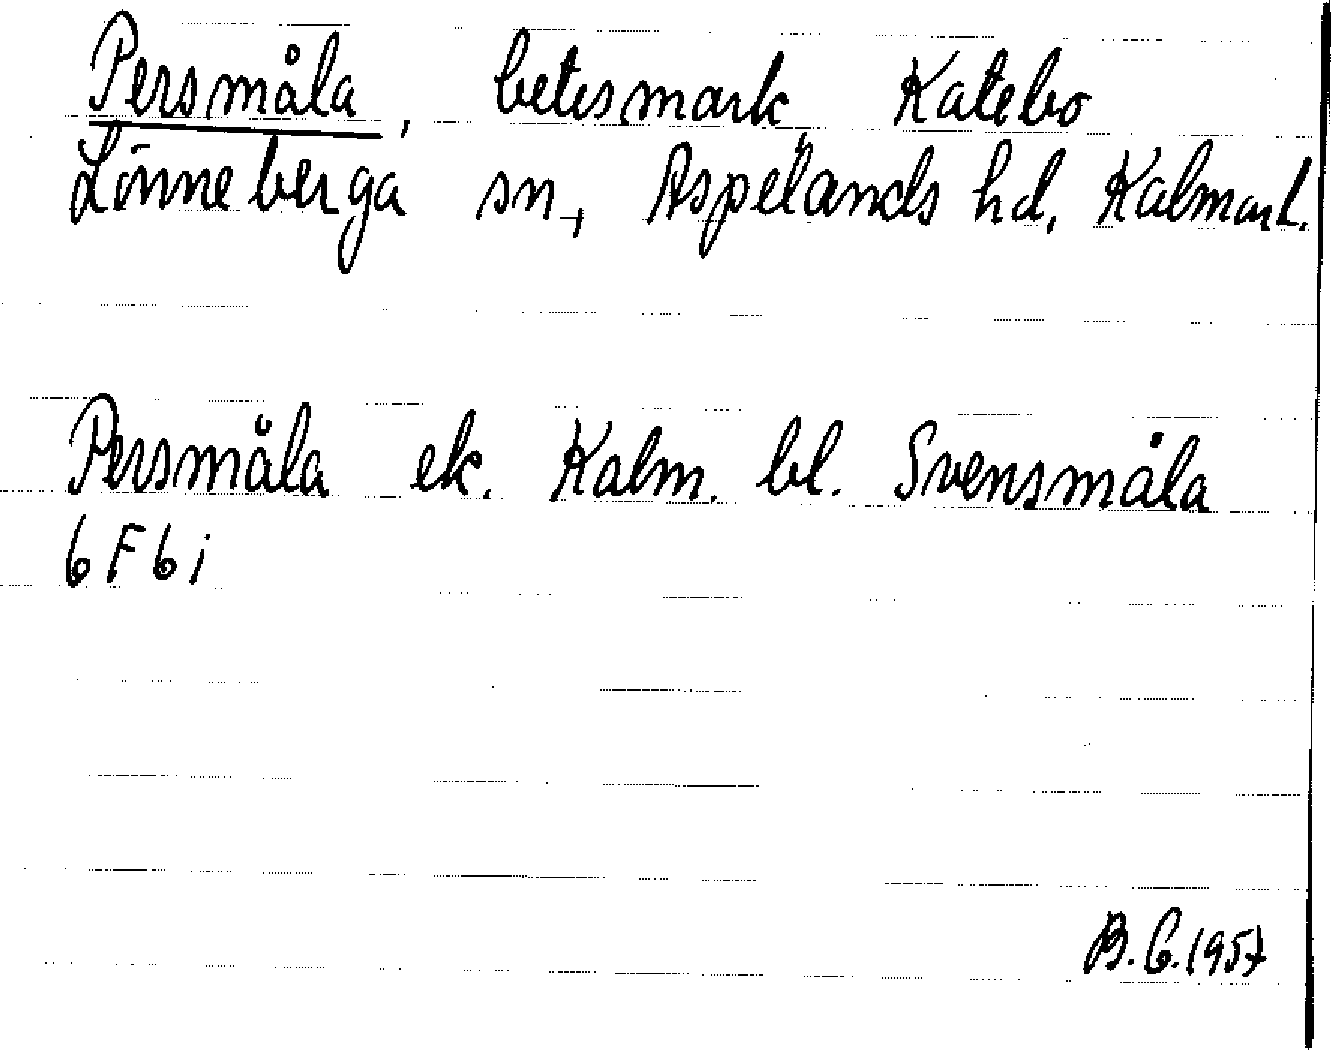 Persmåla, betesmark, Katebo
Lönneberga sn, Aspelands hd, Kalmarl.
Persmåla ek. Kalm. bl. Svensmåla
6F6i
B.G. 1957